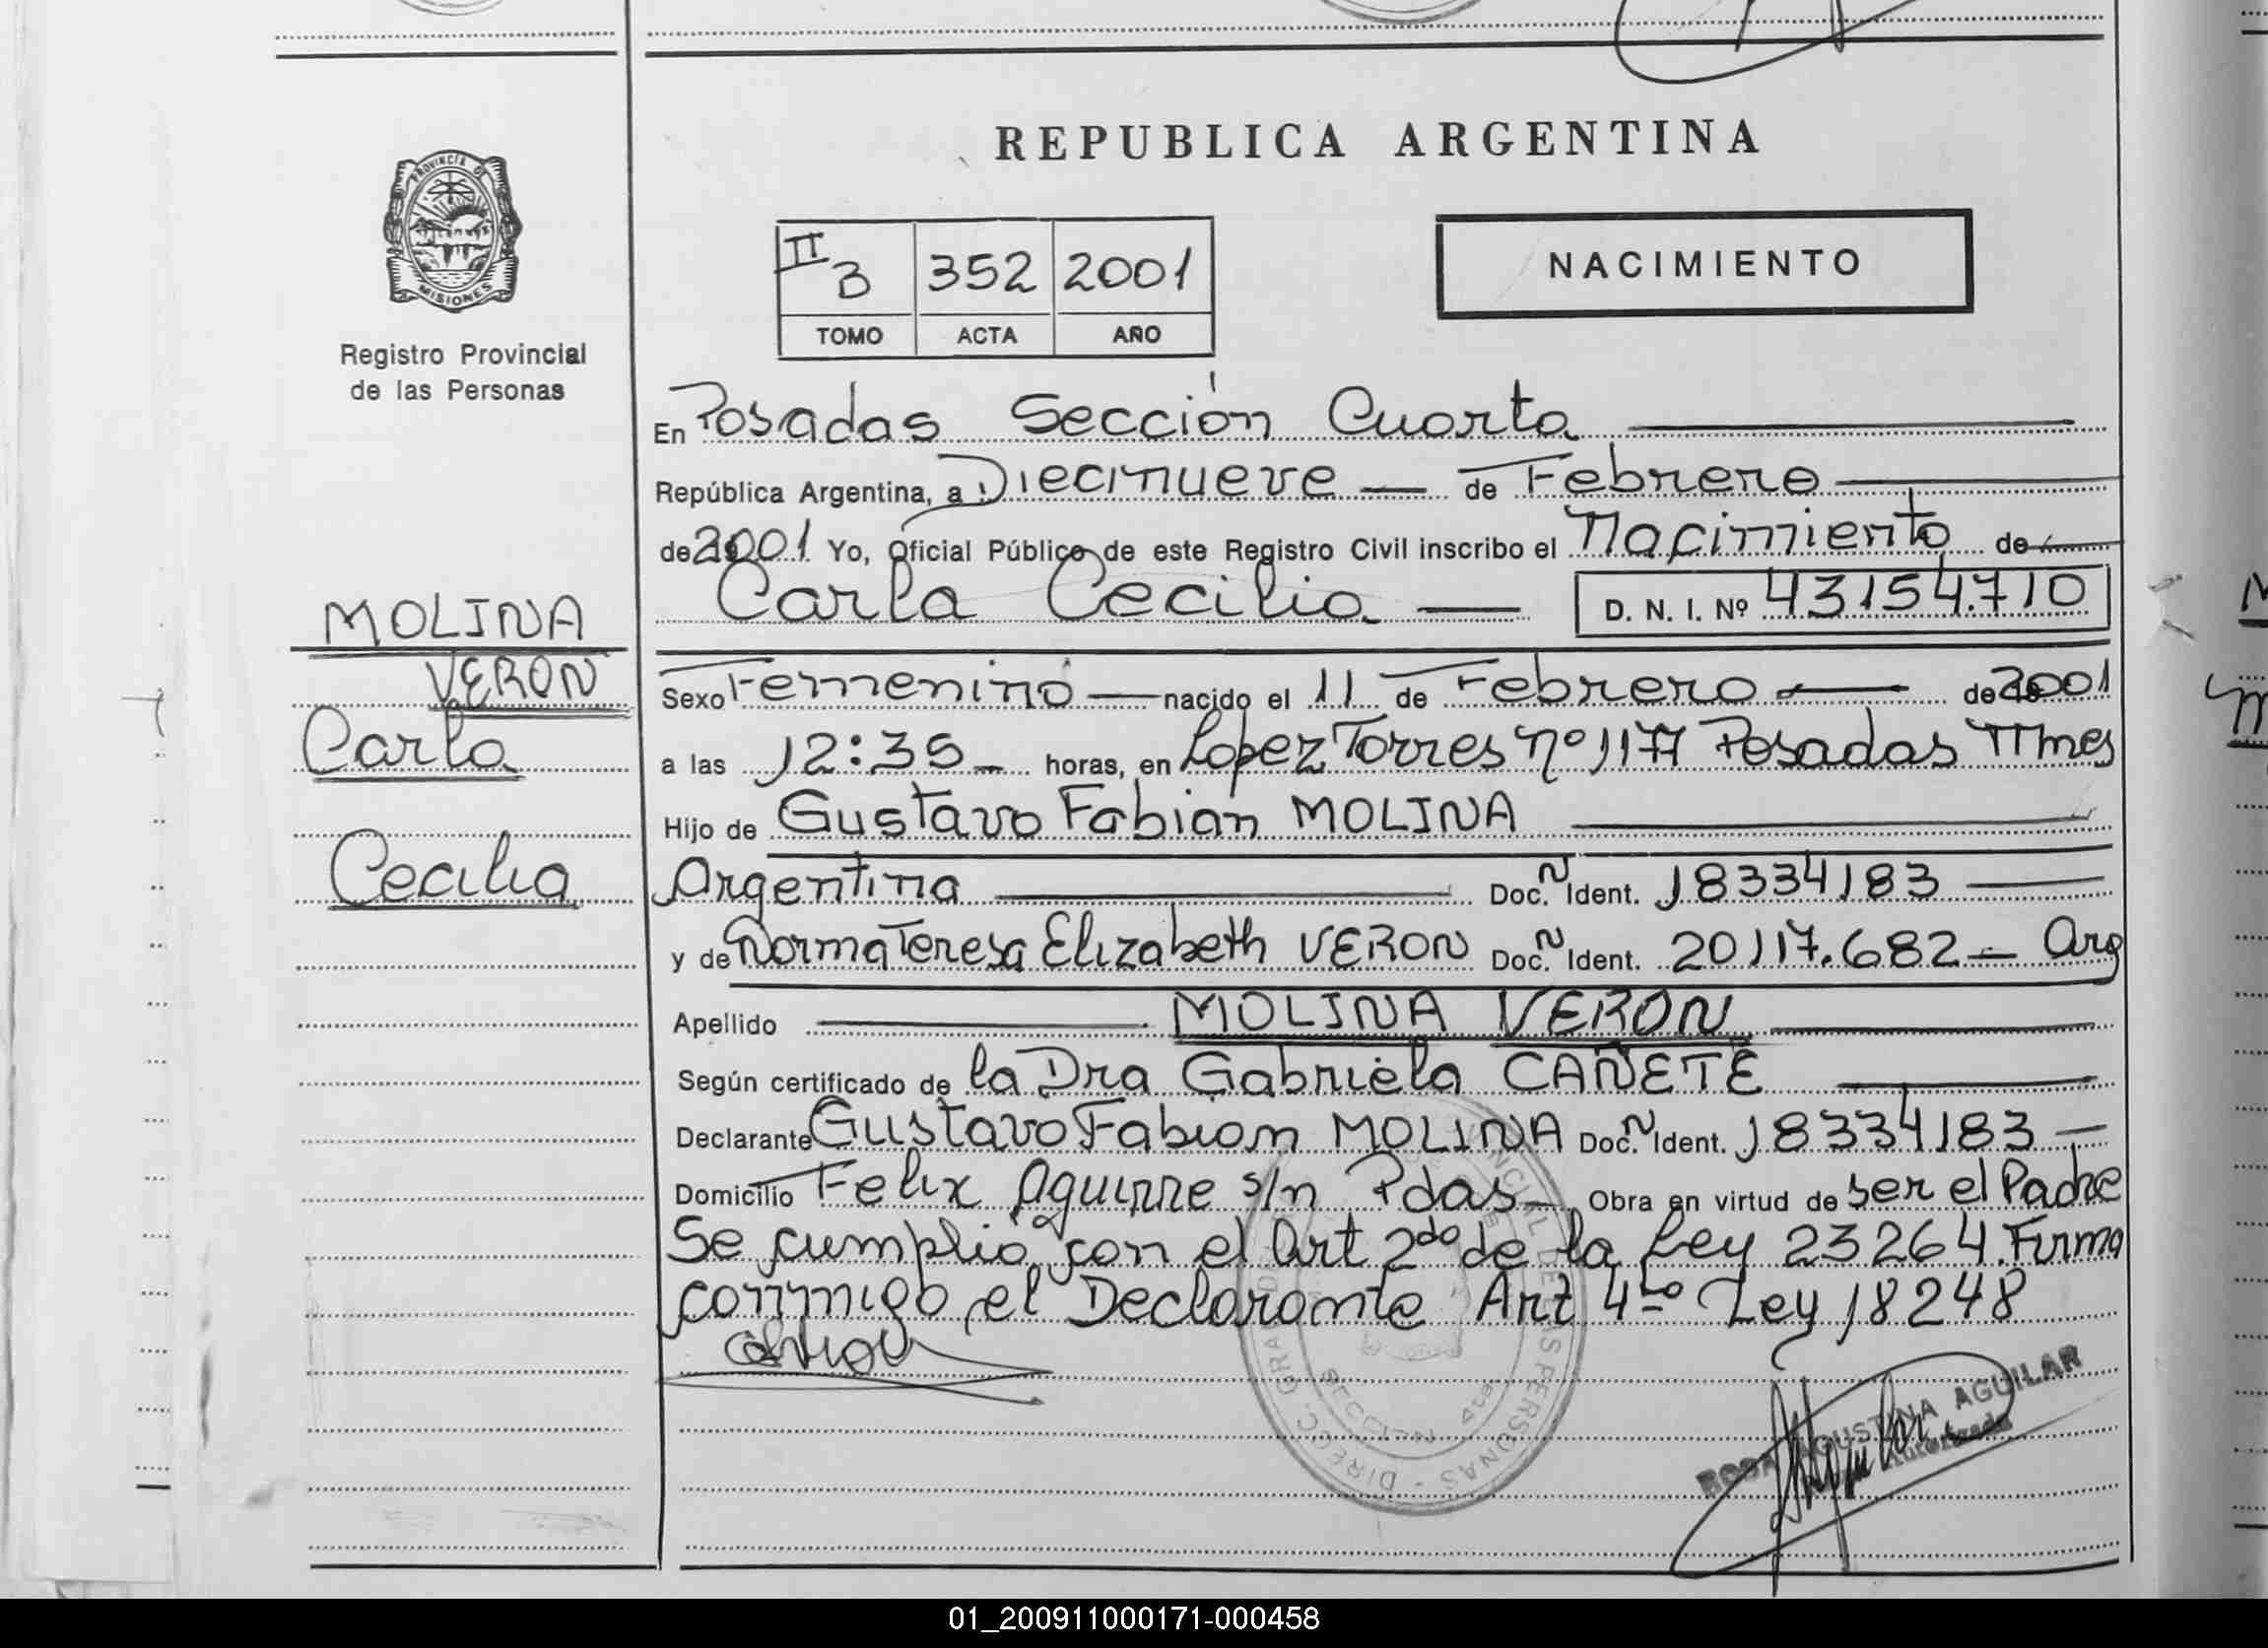 PROVINCIA DE
MISIONES
Registro Provincial
de las Personas
MOLINA
VERON
Carla
Cecilia
REPUBLICA ARGENTINA
II 3 352 2001
TOMO ACTA AÑO
NACIMIENTO
En Posadas Sección Cuarta
República Argentina, a Diecinueve de Febrero
de 2001 Yo, Oficial Público de este Registro Civil inscribo el Nacimiento de
Carla Cecilia D. N. I. Nº 43154.710
Sexo Femenino nacido el 11 de Febrero de 2001
a las 12:35 horas, en Lopez Torres nº 1177 Posadas Mnes
Hijo de Gustavo Fabian MOLINA
Argentina Doc. N Ident. 18334183
y de Norma Teresa Elizabeth VERON Doc. N Ident. 20117.682 Arg
Apellido MOLINA VERON
Según certificado de la Dra Gabriela CAÑETE
Declarante Gustavo Fabian MOLINA Doc. N Ident. 18334183
Domicilio Felix Aguirre s/n Pdas Obra en virtud de ser el Padre
Se cumplio con el Art 2do de la Ley 23264. Firma
conmigo el Declarante Art 4to Ley 18248
ROSA AGUSTINA AGUILAR
Autorizada
01_200911000171-000458